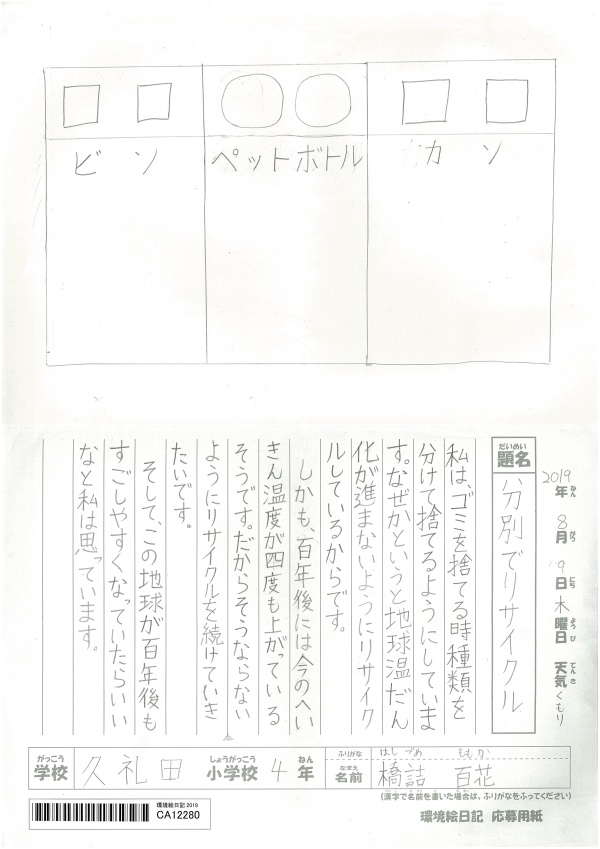 ビン
ペットボトル
カン
2019年 8月 9日 木曜日 天気 くもり
ねん がつ にち ようび てんき
だいめい
題名
分別でリサイクル
私は、ゴミを捨てる時種類を
分けて捨てるようにしていま
す。なぜかというと地球温だん
化が進まないようにリサイク
ルしているからです。
しかも、百年後には今のへい
きん温度が四度も上がっている
そうです。だからそうならない
ようにリサイクルを続けていき
たいです。
そして、この地球が百年後も
すごしやすくなっていたらいい
なと私は思っています。
がっこう しょうがっこう ねん
学校 久礼田 小学校 4年
ふりがな はしづめ ももか
なまえ
名前 橋詰 百花
(漢字で名前を書いた場合は、ふりがなをふってください)
環境絵日記 2019
CA12280
環境絵日記 応募用紙